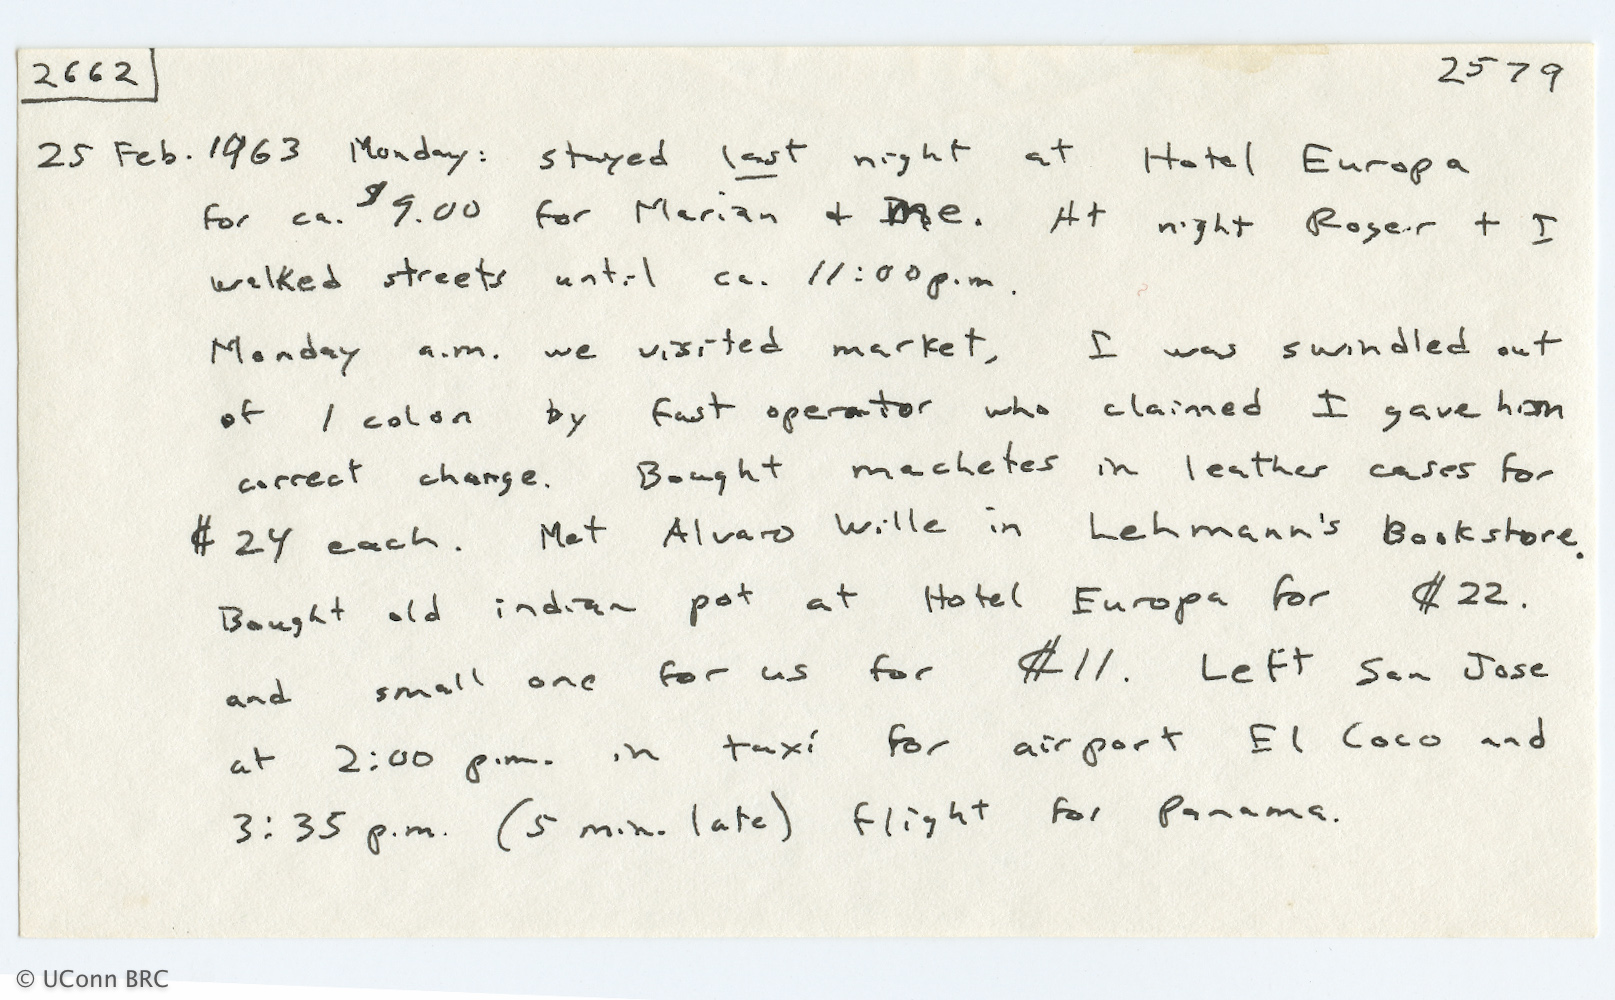 2662
2579
25 Feb. 1963 Monday: stayed last night at Hotel Europa
for ca. $9.00 for Marian + me. At night Roger + I
walked streets until ca. 11:00 p.m.
Monday a.m. we visited market, I was swindled out
of 1 colon by fast operator who claimed I gave him
correct change. Bought machetes in leather cases for
₡24 each. Met Alvaro Wille in Lehmann's Bookstore.
Bought old indian pot at Hotel Europa for ₡22.
and small one for us for ₡11. Left San Jose
at 2:00 p.m. in taxi for airport El Coco and
3:35 p.m. (5 min. late) flight for Panama.
© UConn BRC